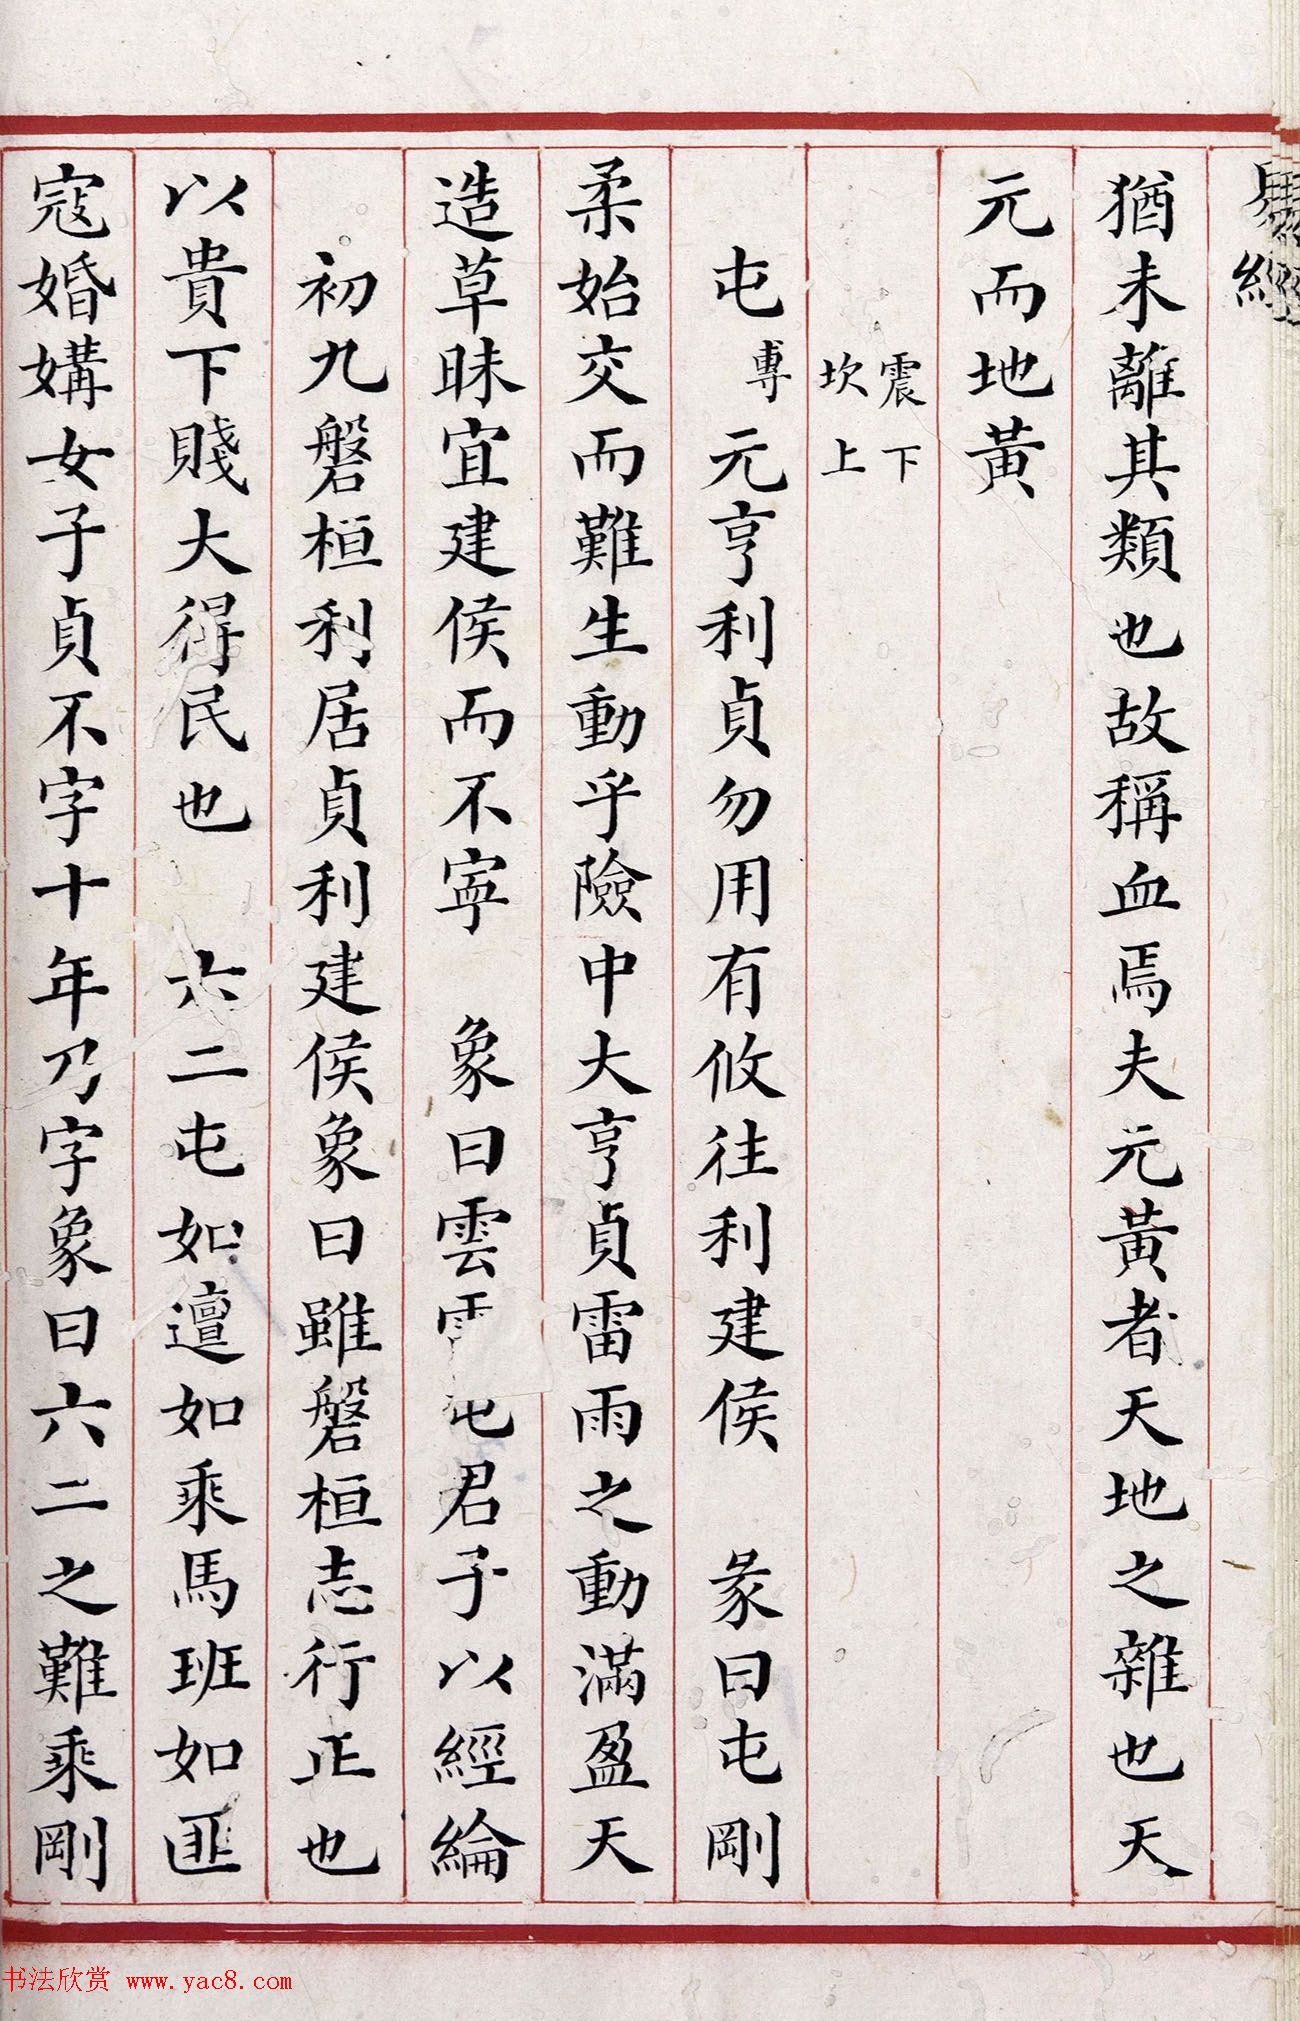 易經
猶未離其類也故稱血焉夫元黃者天地之雜也天
元而地黃
震下
坎上
屯專元亨利貞勿用有攸往利建侯　彖曰屯剛
柔始交而難生動乎險中大亨貞雷雨之動滿盈天
造草昧宜建侯而不寧　象曰雲雷屯君子以經綸
初九磐桓利居貞利建侯象曰雖磐桓志行正也
以貴下賤大得民也　六二屯如邅如乘馬班如匪
寇婚媾女子貞不字十年乃字象曰六二之難乘剛
书法欣赏 www.yac8.com